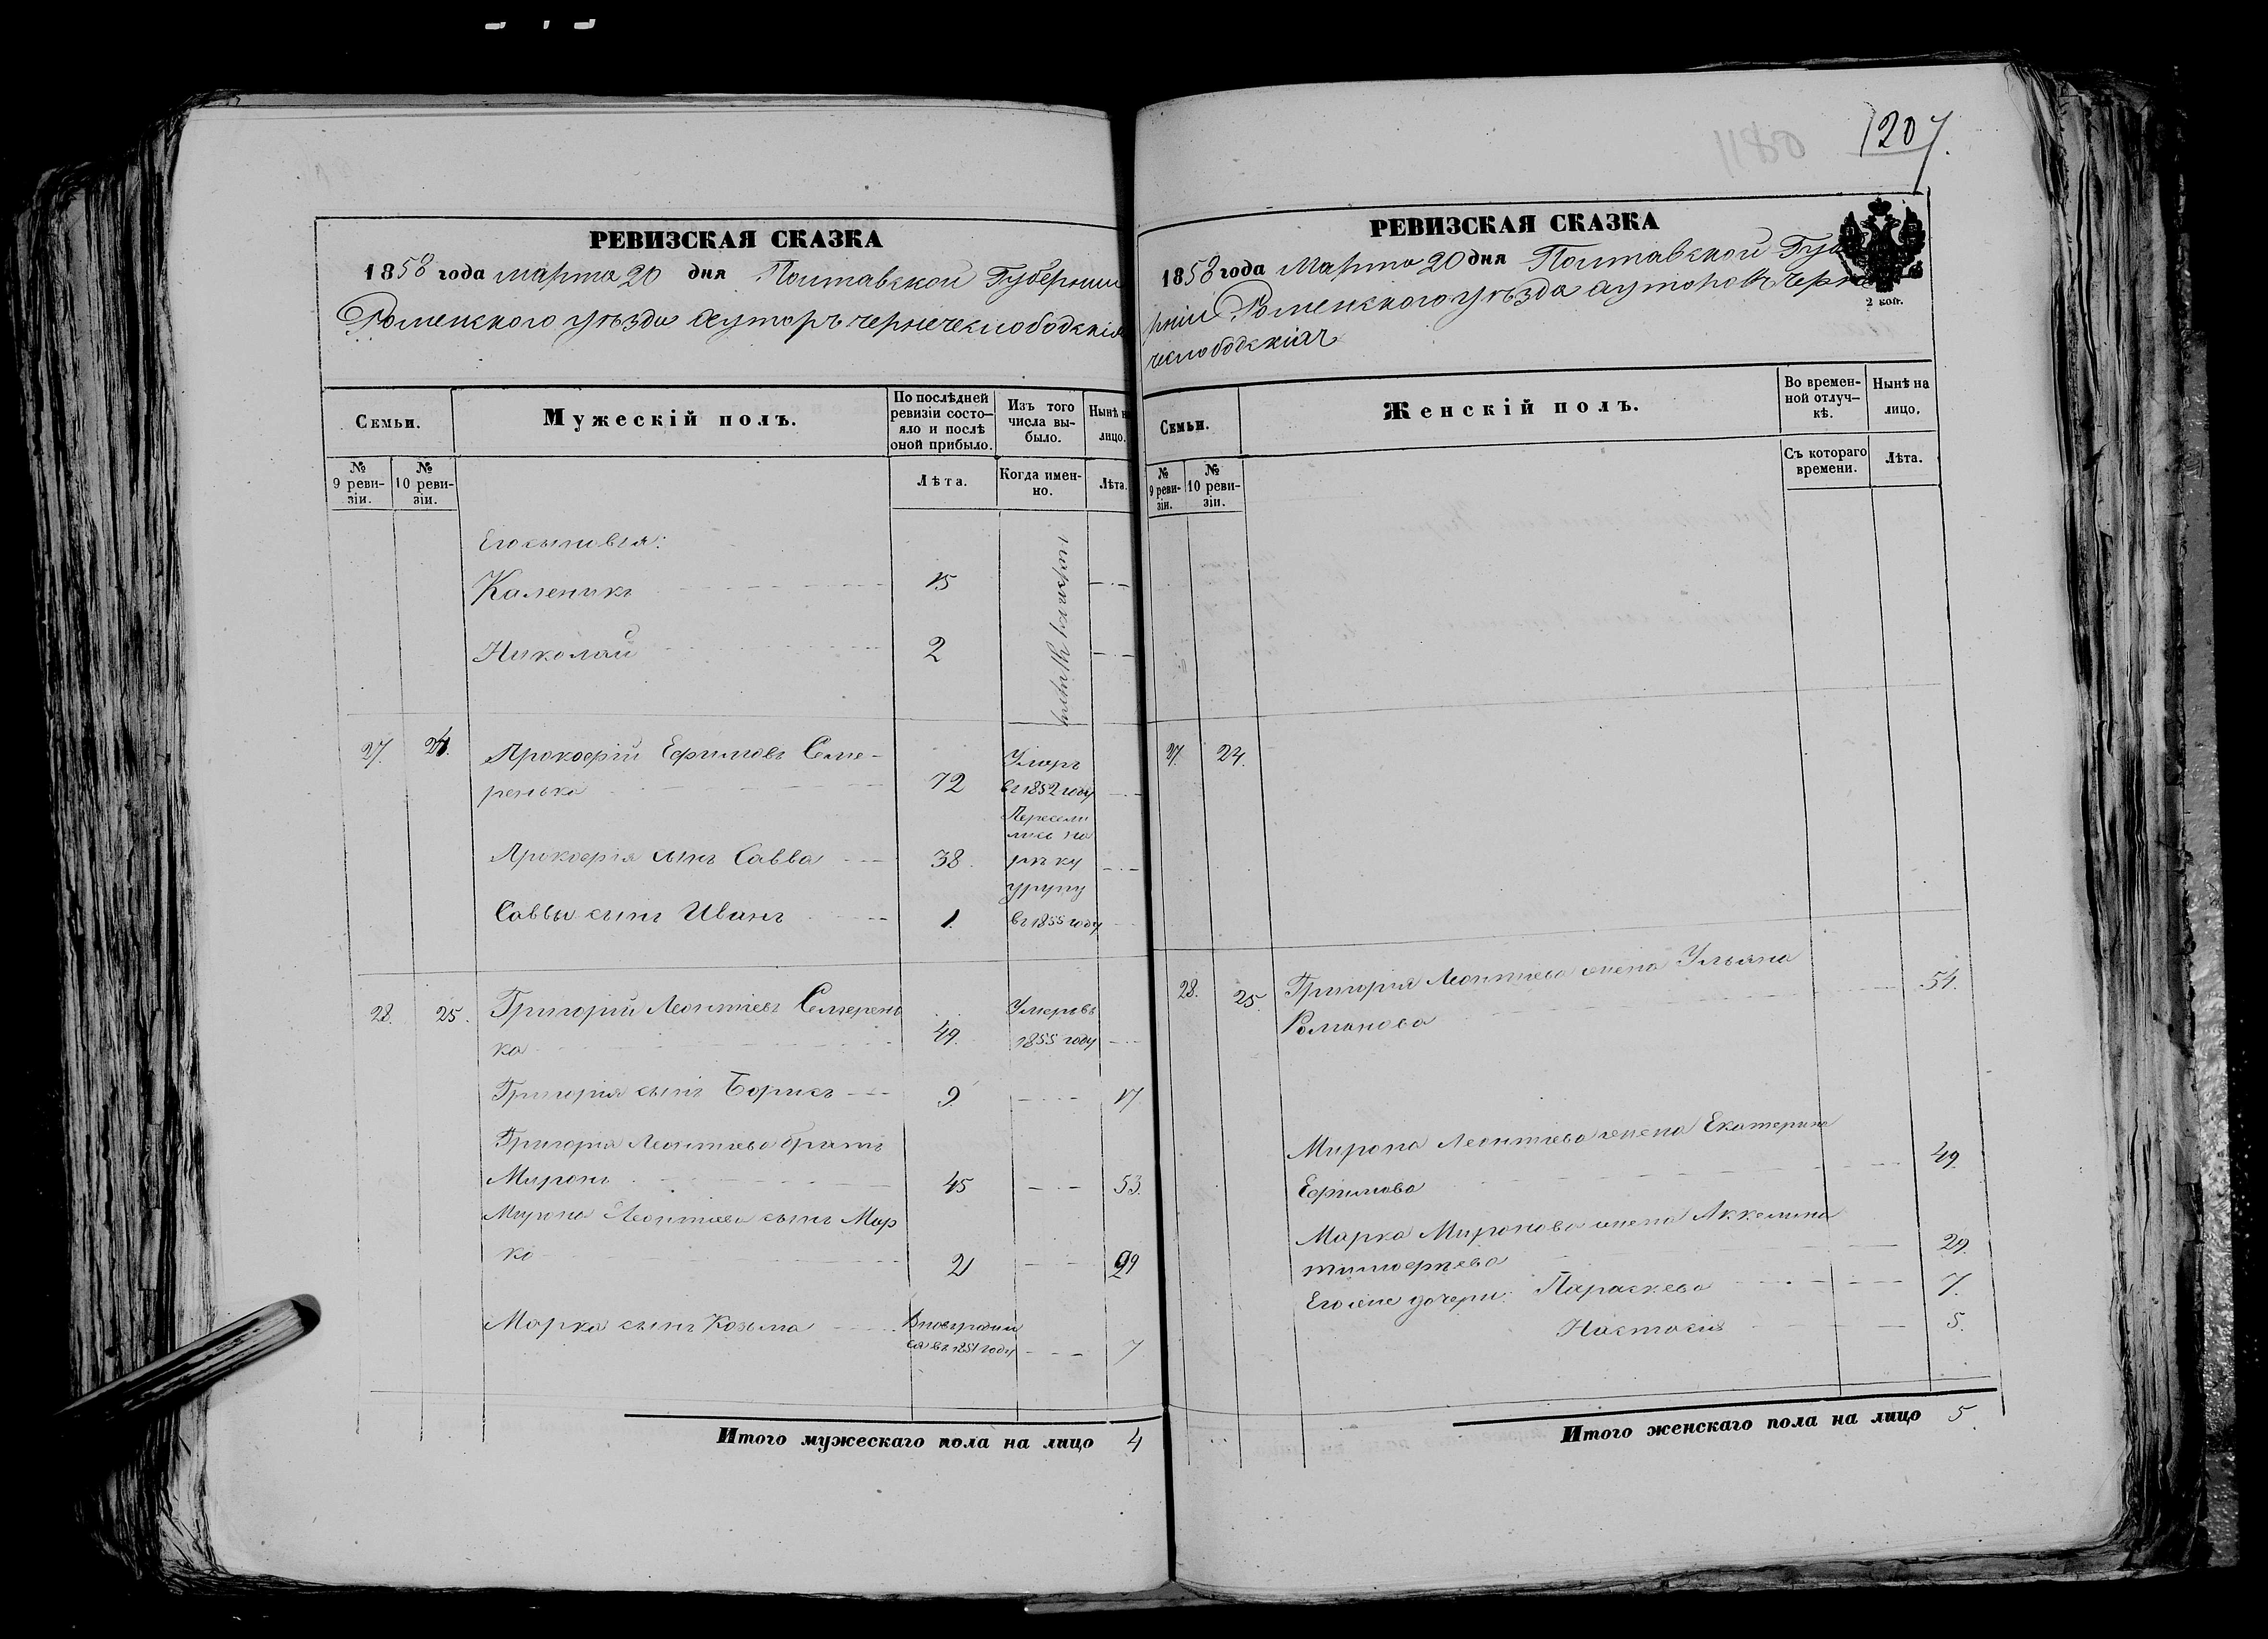 1207.
РЕВИЗСКАЯ СКАЗКА
1858 года марта 20 дня Полтавской Губернии
Роменского уѣзда хуторъ чернечеслободскія
Семьи.
Мужескій полъ.
По послѣдней ревизіи состо-
яло и послѣ
оной прибыло.
Изъ того
числа вы-
было.
Нынѣ на
лицо.
№
9 реви-
зіи.
№
10 реви-
зіи.
Лѣта.
Когда имен-
но.
Лѣта.
Его сыновья:
Каленикъ 15
Николай 2
27. 24. Прокофій Ефимовъ Семе-
ренька 72 Умеръ
въ 1852 году
Пересели
лись на
Прокофія сынъ Савва 38. рѣку
урупу
Саввы сынъ Иванъ 1. въ 1855 году
28. 25. Григорій Леонтіевъ Семерень
ка 49. Умеръ въ
1855 году
Григорія сынъ Борисъ 9 17.
Григорія Леонтіева братъ
Миронъ 45 53.
Мирона Леонтіева сынъ Мар
ко 21 29
Марка сынъ Козьма Вновь родил
ся въ 1851 году 7
Итого мужескаго пола на лицо 4
РЕВИЗСКАЯ СКАЗКА
1858 года Марта 20 дня Полтавской Губе
рніи Роменского уѣзда хуторовъ Черне
чеслободскіхъ
2 коп.
Семьи.
Женскій полъ.
Во времен-
ной отлуч-
кѣ.
Нынѣ на
лицо.
№
9 реви-
зіи.
№
10 реви-
зіи.
Съ котораго
времени.
Лѣта.
27. 24.
28. 25. Григорія Леонтіева жена Ульяна
Романова 54.
Мирона Леонтіева жена Екатерина
Ефимова 49.
Марка Миронова жена Аккелина
тимофіева 29.
Его же дочери: Параскева 7.
Настасія 5.
Итого женскаго пола на лицо 5.